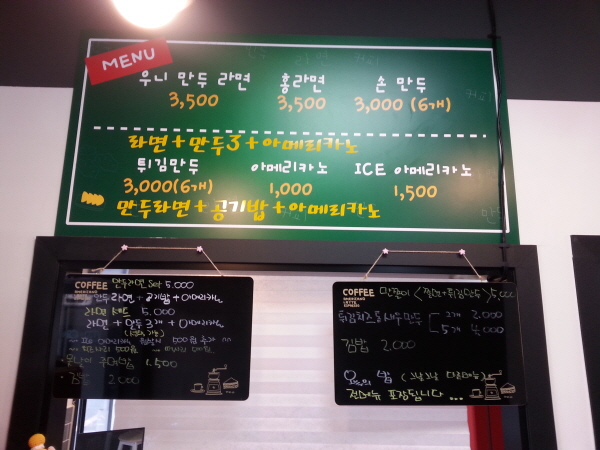 MENU
우니 만두 라면 홍라면 손 만두
3,500 3,500 3,000 (6개)
라면+만두3+아메리카노
튀김만두 아메리카노 ICE 아메리카노
3,000(6개) 1,000 1,500
만두라면+공기밥+아메리카노
COFFEE 만두라면 Set 5.000
만두라면+공기밥+아메리카노
라면 세트 5.000
라면+만두3개+아메리카노
500원 추가
500원
1.500
김밥 2.000
COFFEE
LATTE
ESPRESSO
튀김만두 > 5,000
2개 2.000
5개 4.000
김밥 2.000
포장됩니다...